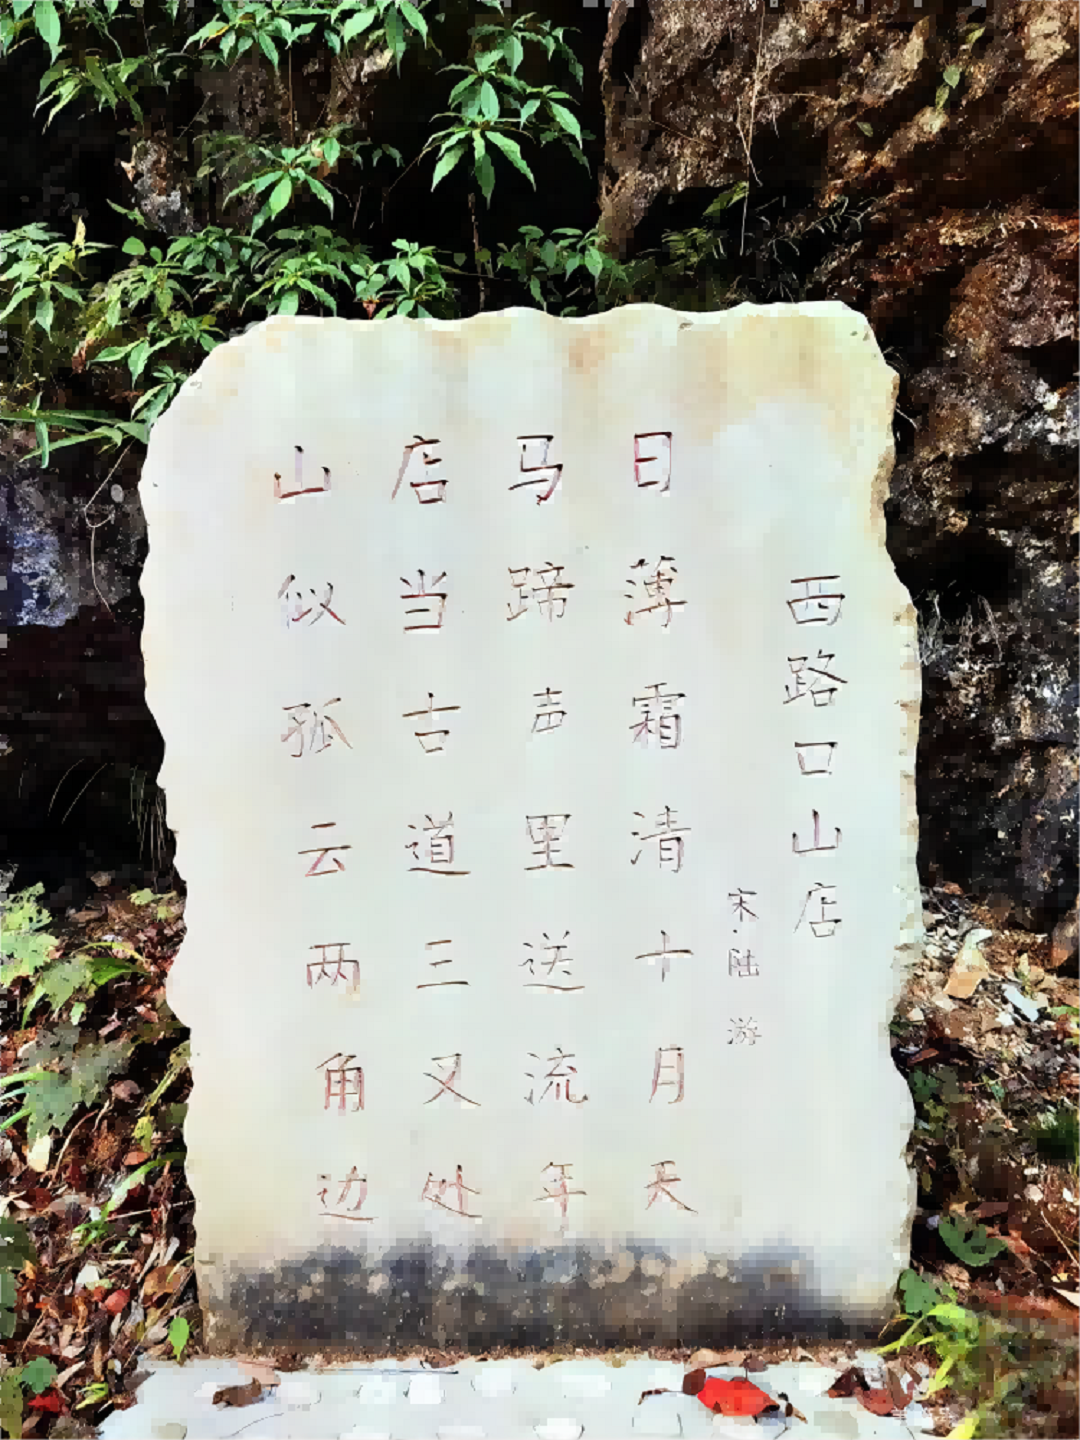 西路口山店
宋·陆游
日薄霜清十月天
马蹄声里送流年
店当古道三叉处
山似孤云两角边